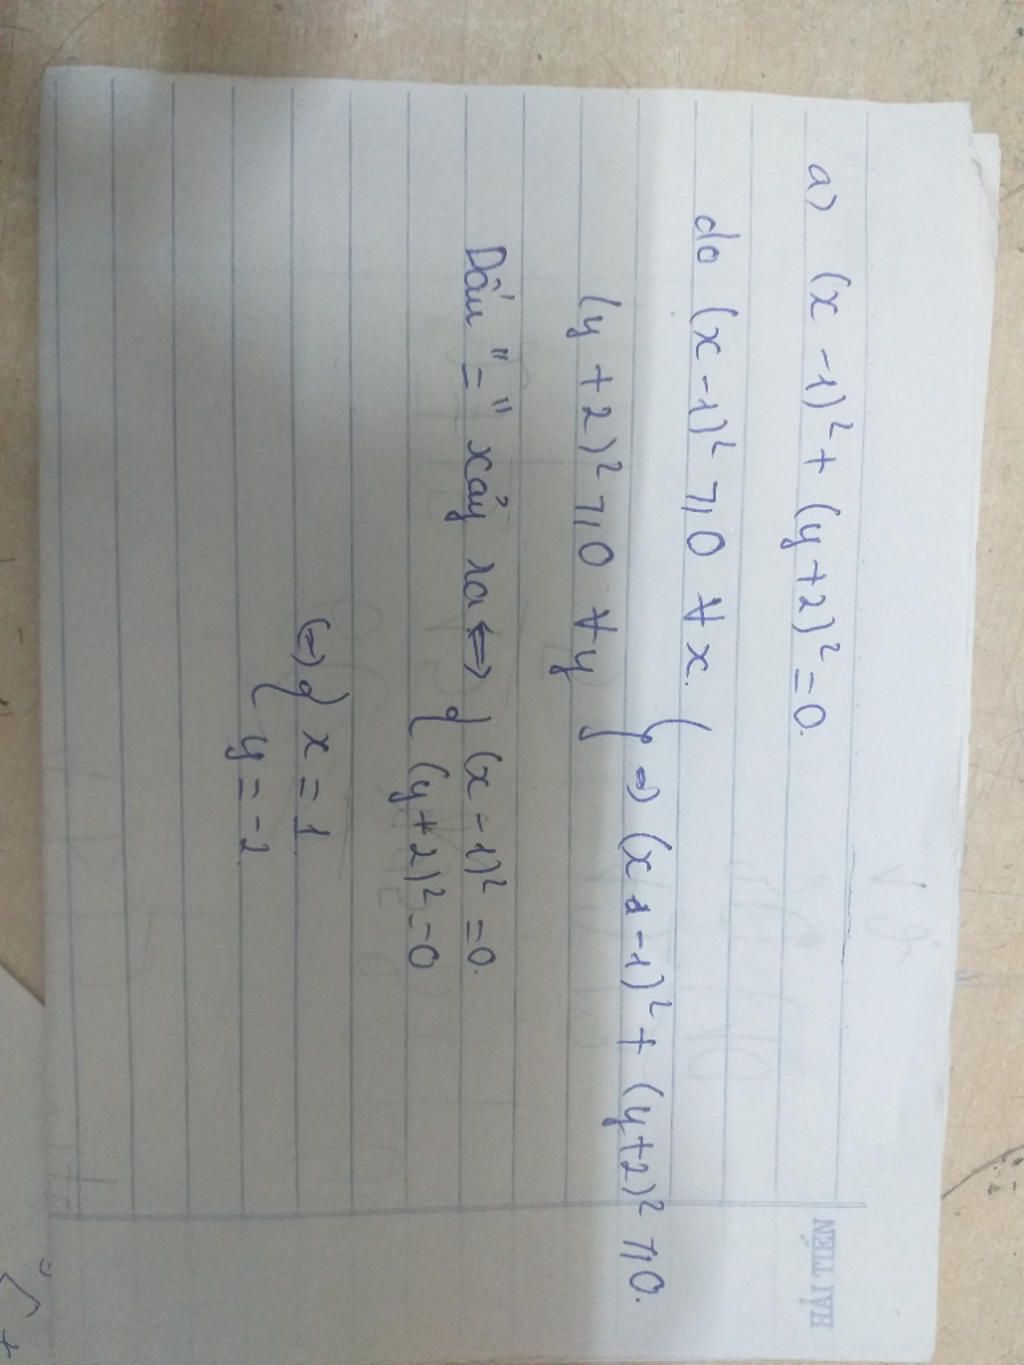 a) (x - 1)² + (y + 2)² = 0.
do (x - 1)² ≥ 0 ∀ x.
(y + 2)² ≥ 0 ∀ y
} => (x - 1)² + (y + 2)² ≥ 0.
Dấu "=" xảy ra <=> { (x - 1)² = 0.
(y + 2)² = 0
<=> { x = 1
y = -2
HẢI TIẾN